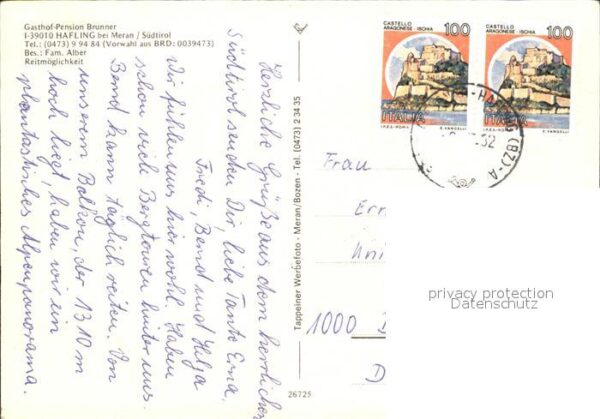 Gasthof-Pension Brunner
I-39010 HAFLING bei Meran / Südtirol
Tel.: (0473) 9 94 84 (Vorwahl aus BRD: 0039473)
Bes.: Fam. Alber
Reitmöglichkeit
Herzliche Grüße aus dem herrlichen
Südtirol senden Dir, liebe Tante Erna,
Fredi, Bernd und Helga
Wir fühlen uns hier wohl. Haben
schon viele Bergtouren hinter uns.
Bernd kann täglich reiten. Von
unserem Balkon, der 1310 m
hoch liegt, haben wir ein
phantastisches Alpenpanorama.
Tappeiner Werbefoto - Meran/Bozen - Tel. (0473) 2 34 35
26725
CASTELLO
ARAGONESE - ISCHIA
100
ITALIA
I.P.Z.S. - ROMA
E. VANGELLI
CASTELLO
ARAGONESE - ISCHIA
100
ITALIA
I.P.Z.S. - ROMA
E. VANGELLI
(BZ)-A
Frau
1000
privacy protection
Datenschutz